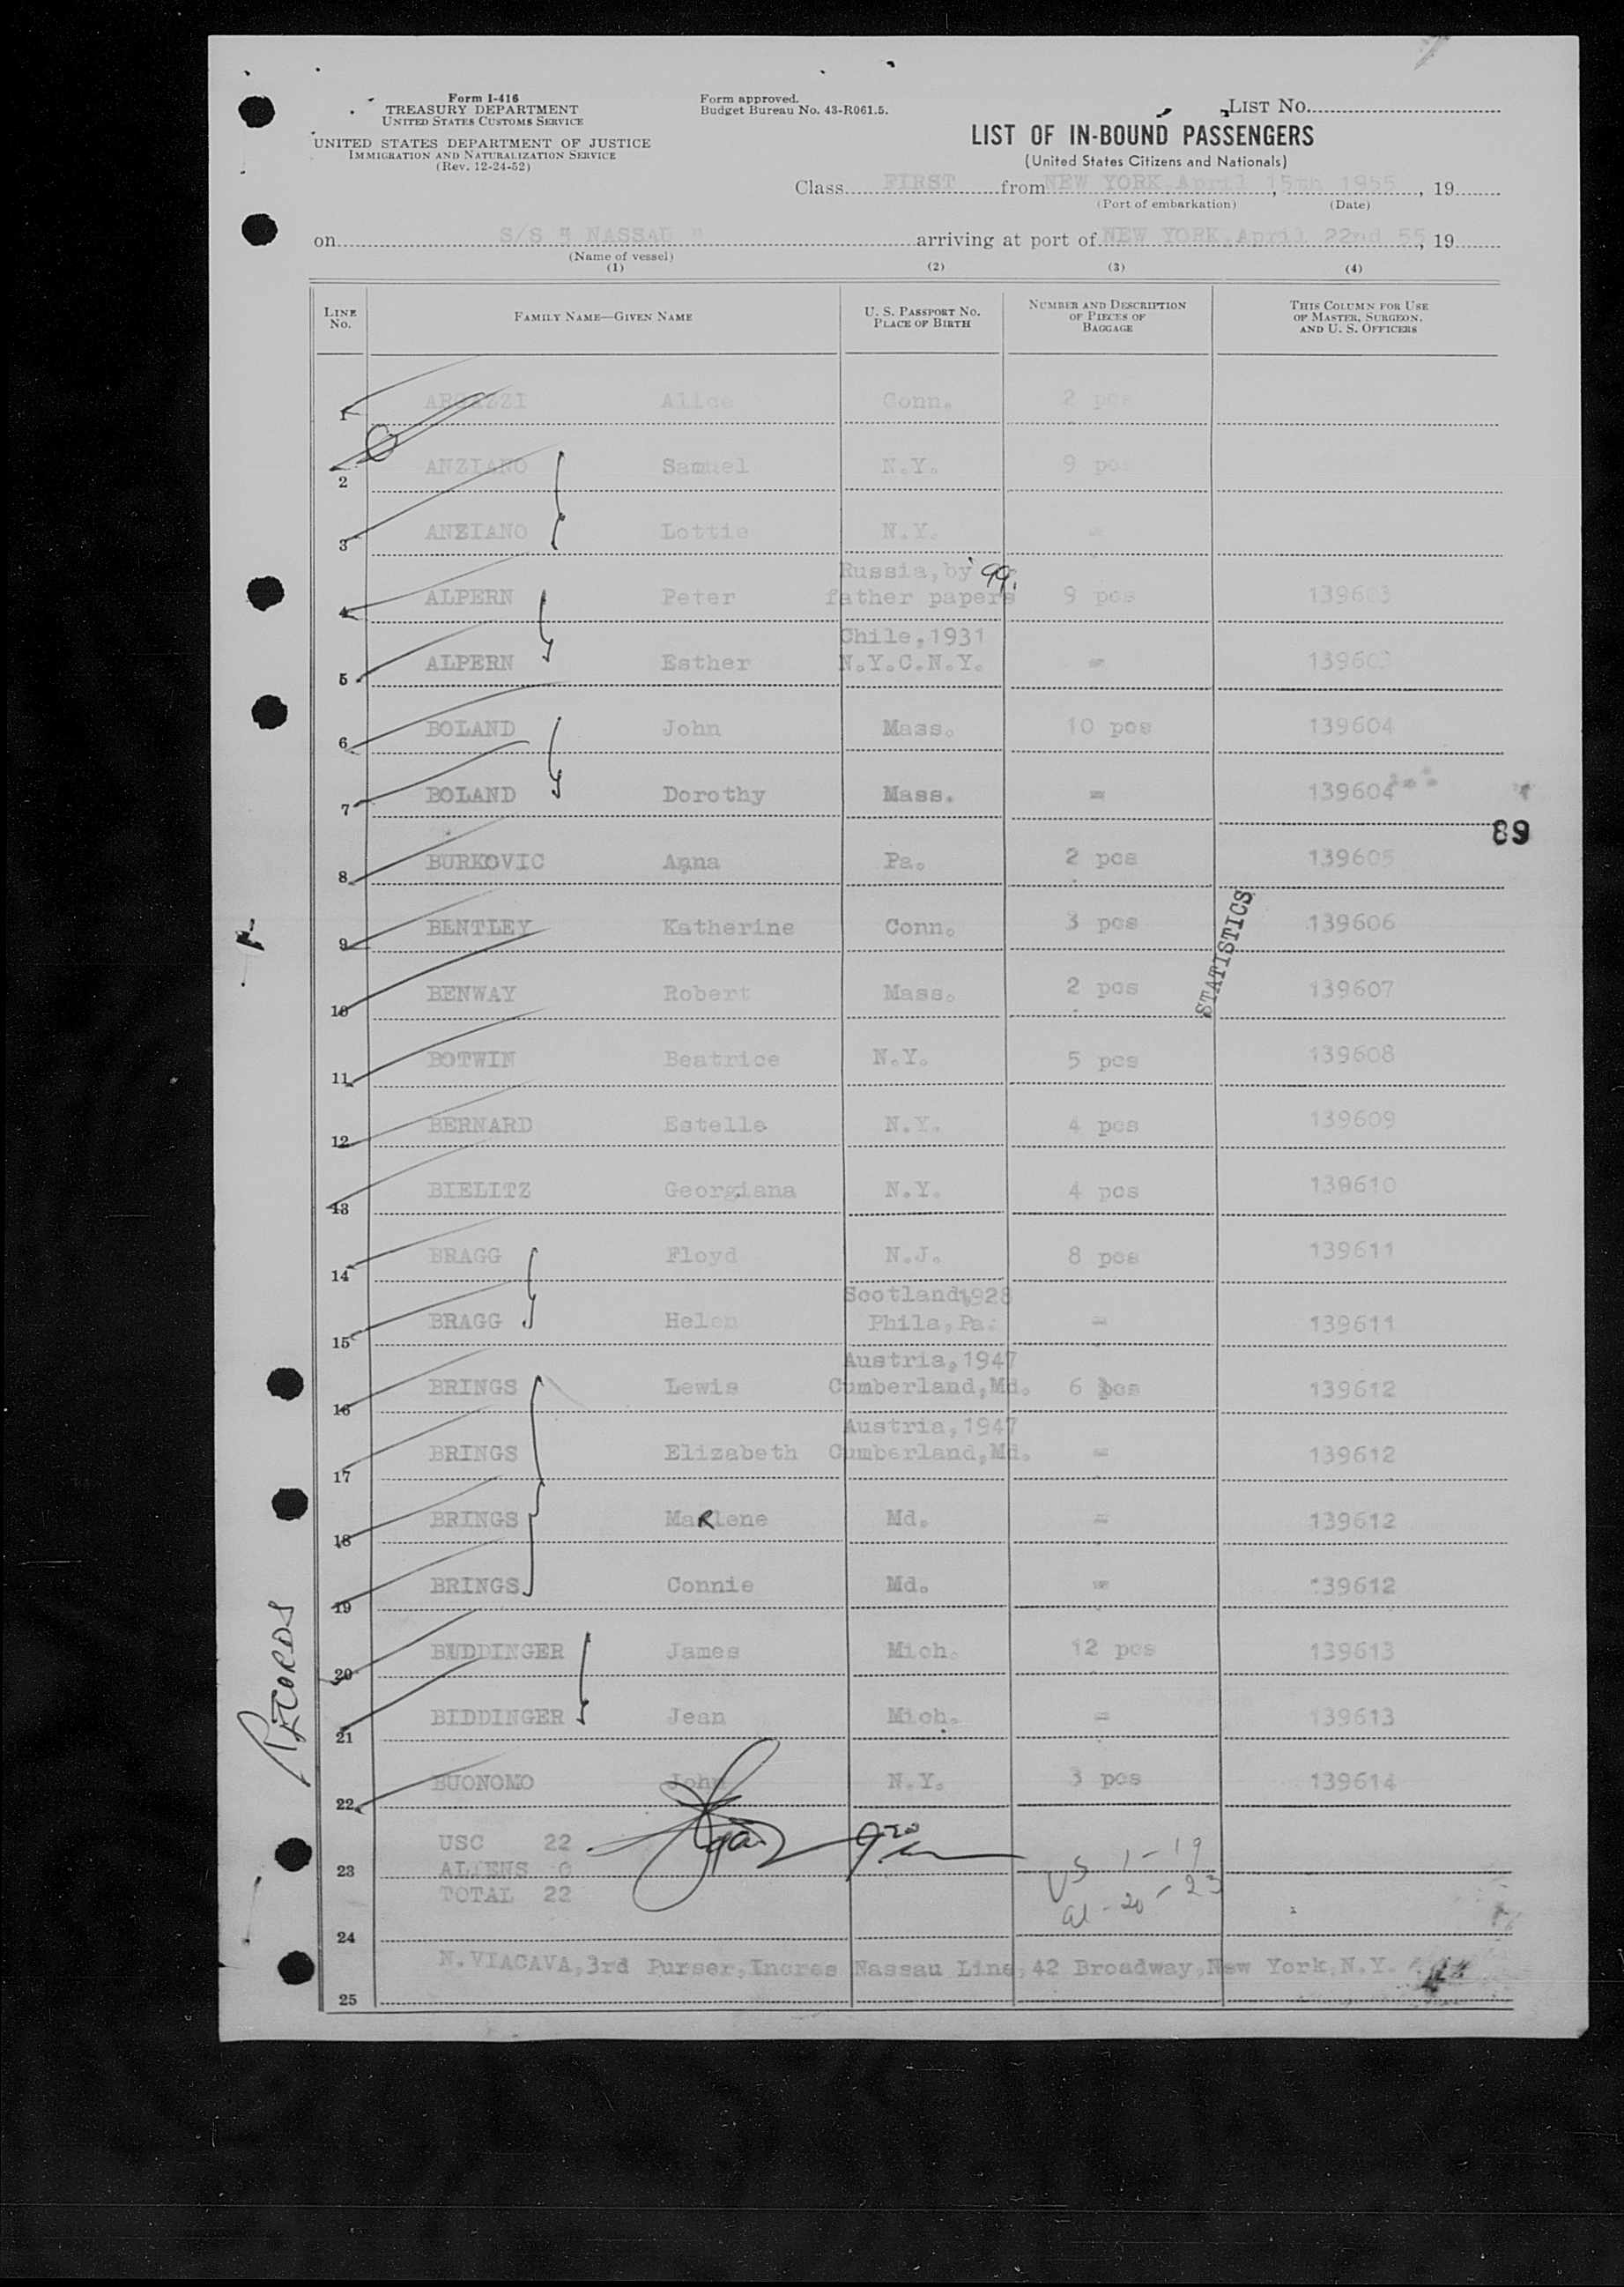 Form I-416
TREASURY DEPARTMENT
UNITED STATES CUSTOMS SERVICE
UNITED STATES DEPARTMENT OF JUSTICE
IMMIGRATION AND NATURALIZATION SERVICE
(Rev. 12-24-52)
Form approved.
Budget Bureau No. 43-R061.5.
LIST NO.
LIST OF IN-BOUND PASSENGERS
(United States Citizens and Nationals)
Class FIRST from NEW YORK, April 15th 1955, 19
(Port of embarkation) (Date)
on S/S " NASSAU " arriving at port of NEW YORK, April 22nd 55, 19
(Name of vessel)
(1) (2) (3) (4)
LINE NO. FAMILY NAME—GIVEN NAME U. S. PASSPORT NO. PLACE OF BIRTH NUMBER AND DESCRIPTION OF PIECES OF BAGGAGE THIS COLUMN FOR USE OF MASTER, SURGEON, AND U. S. OFFICERS
1 Alice Conn. 2 pcs
2 ANZIANO Samuel N.Y. 9 pcs
3 ANZIANO Lottie N.Y. =
Russia, by
4 ALPERN Peter father papers 9 pcs 139603
Chile, 1931
5 ALPERN Esther N.Y.C.N.Y. = 139603
6 BOLAND John Mass. 10 pcs 139604
7 BOLAND Dorothy Mass. = 139604
89
8 BURKOVIC Anna Pa. 2 pcs 139605
9 BENTLEY Katherine Conn. 3 pcs 139606
STATISTICS
10 BENWAY Robert Mass. 2 pcs 139607
11 BOTWIN Beatrice N.Y. 5 pcs 139608
12 BERNARD Estelle N.Y. 4 pcs 139609
13 BIELITZ Georgiana N.Y. 4 pcs 139610
14 BRAGG Floyd N.J. 8 pcs 139611
Scotland, 1928
15 BRAGG Helen Phila, Pa. = 139611
Austria, 1947
16 BRINGS Lewis Cumberland, Md. 6 pcs 139612
Austria, 1947
17 BRINGS Elizabeth Cumberland, Md. = 139612
18 BRINGS MaRlene Md. = 139612
19 BRINGS Connie Md. = 139612
RECORDS
20 BUDDINGER James Mich. 12 pcs 139613
21 BIDDINGER Jean Mich. = 139613
22 BUONOMO John N.Y. 3 pcs 139614
USC 22
23 ALIENS 0
US 1-19
TOTAL 22
al-20-23
24
N. VIACAVA, 3rd Purser, Incres Nassau Line, 42 Broadway, New York, N.Y.
25